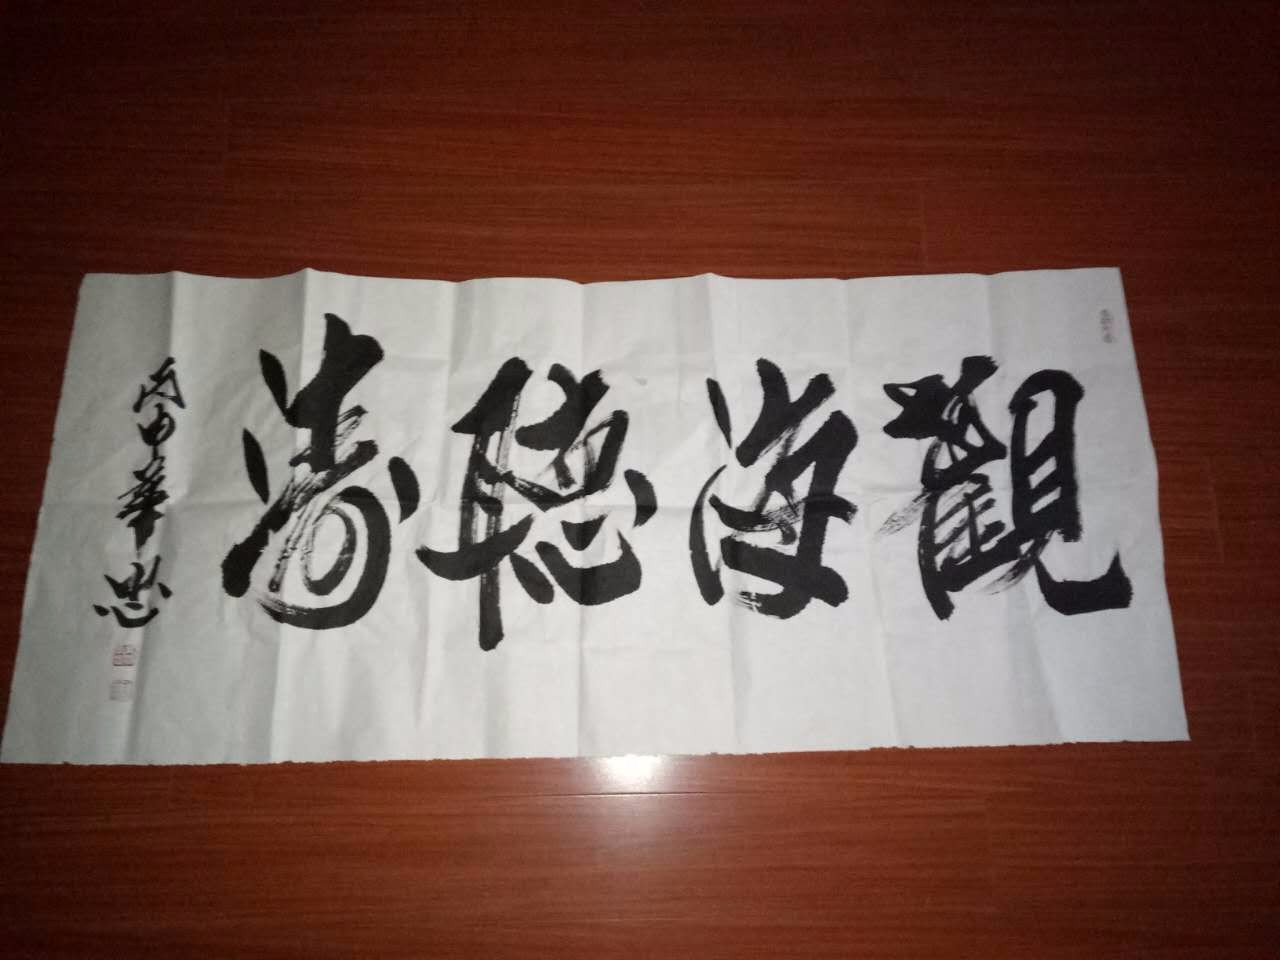 觀海聽濤
丙申華忠